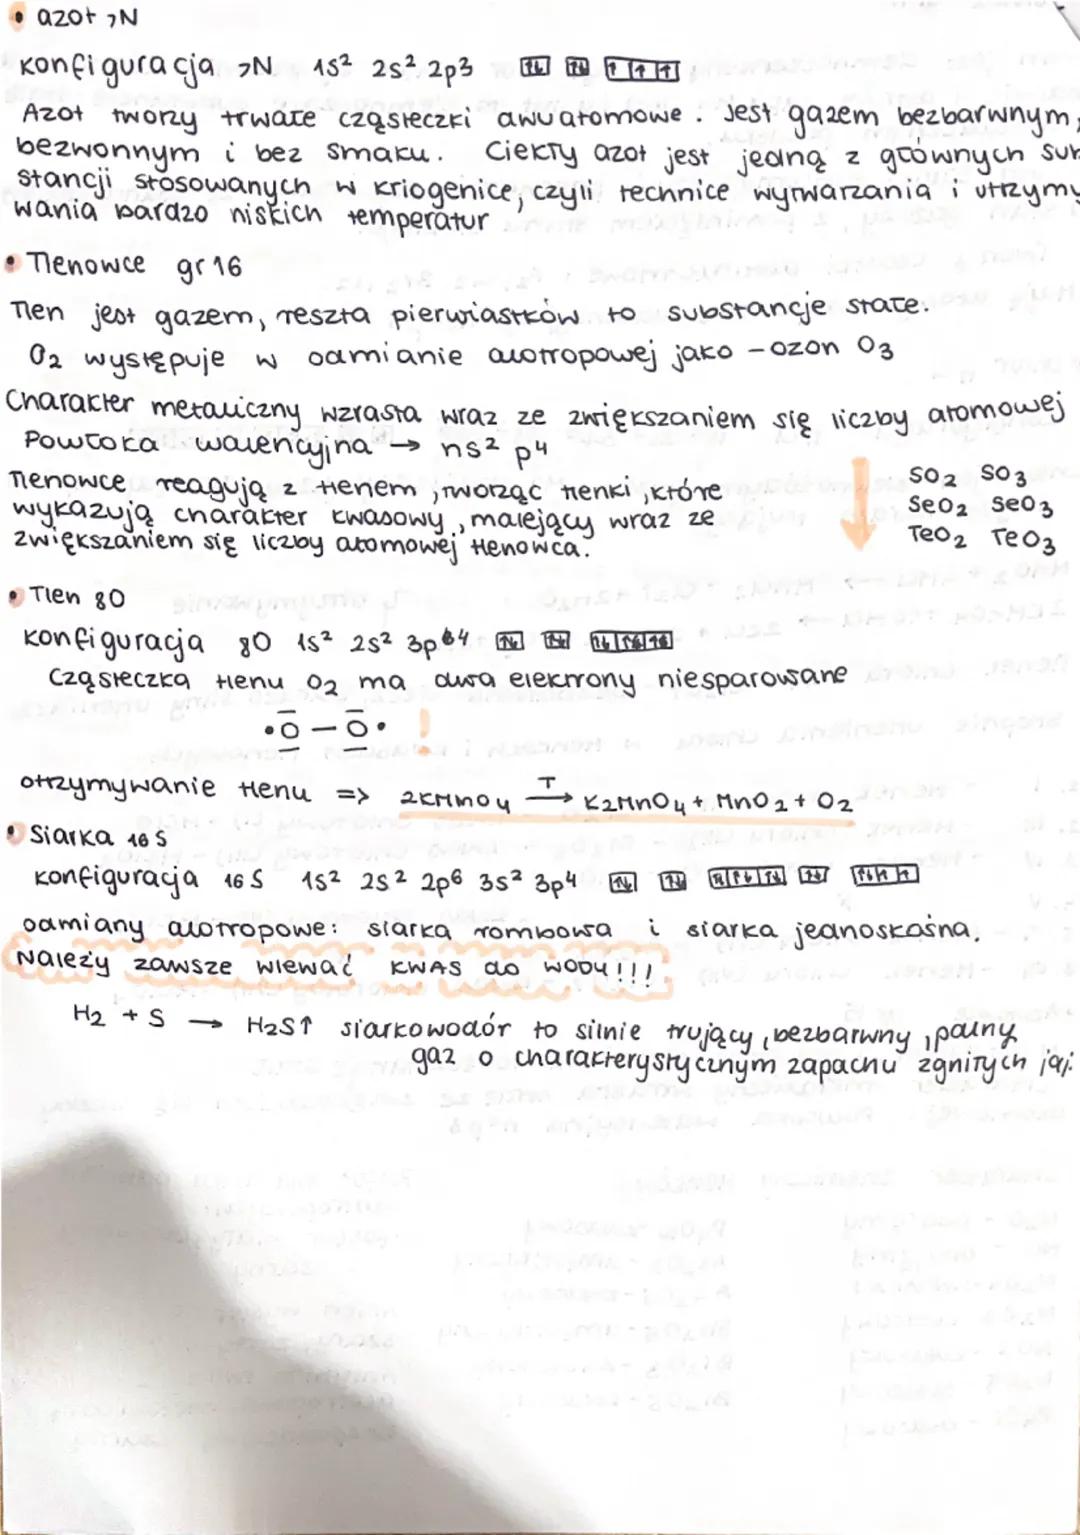 • azot ₇N
konfiguracja ₇N 1s² 2s² 2p³ ↑↓ ↑↓ ↑ ↑ ↑
Azot tworzy trwałe cząsteczki dwuatomowe. Jest gazem bezbarwnym,
bezwonnym i bez smaku. Ciekły azot jest jedną z głównych sub
stancji stosowanych w kriogenice, czyli technice wytwarzania i utrzymy
wania bardzo niskich temperatur
• Tlenowce gr 16
Tlen jest gazem, reszta pierwiastków to substancje stałe.
O₂ występuje w odmianie alotropowej jako – ozon O₃
Charakter metaliczny wzrasta wraz ze zwiększaniem się liczby atomowej
Powłoka walencyjna → ns² p⁴
Tlenowce reagują z tlenem, tworząc tlenki, które
wykazują charakter kwasowy, malejący wraz ze
zwiększaniem się liczby atomowej tlenowca.
SO₂ SO₃
SeO₂ SeO₃
TeO₂ TeO₃
• Tlen ₈O
konfiguracja ₈O 1s² 2s² 3p⁴ ↑↓ ↑↓ ↑↓ ↑↓ ↑↓
Cząsteczka tlenu O₂ ma dwa elektrony niesparowane
•O – O• !
otrzymywanie tlenu => 2KMnO₄ T→ K₂MnO₄ + MnO₂ + O₂
• Siarka ₁₆S
konfiguracja ₁₆S 1s² 2s² 2p⁶ 3s² 3p⁴ ↑↓ ↑↓ ↑↓ ↑↓ ↑↓ ↑↓ ↑↓ ↑ ↑
odmiany alotropowe: siarka rombowa i siarka jednoskośna.
Należy zawsze wlewać KWAS do WODY!!!
H₂ + S → H₂S↑ siarkowodór to silnie trujący, bezbarwny, palny
gaz o charakterystycznym zapachu zgniłych jaj.